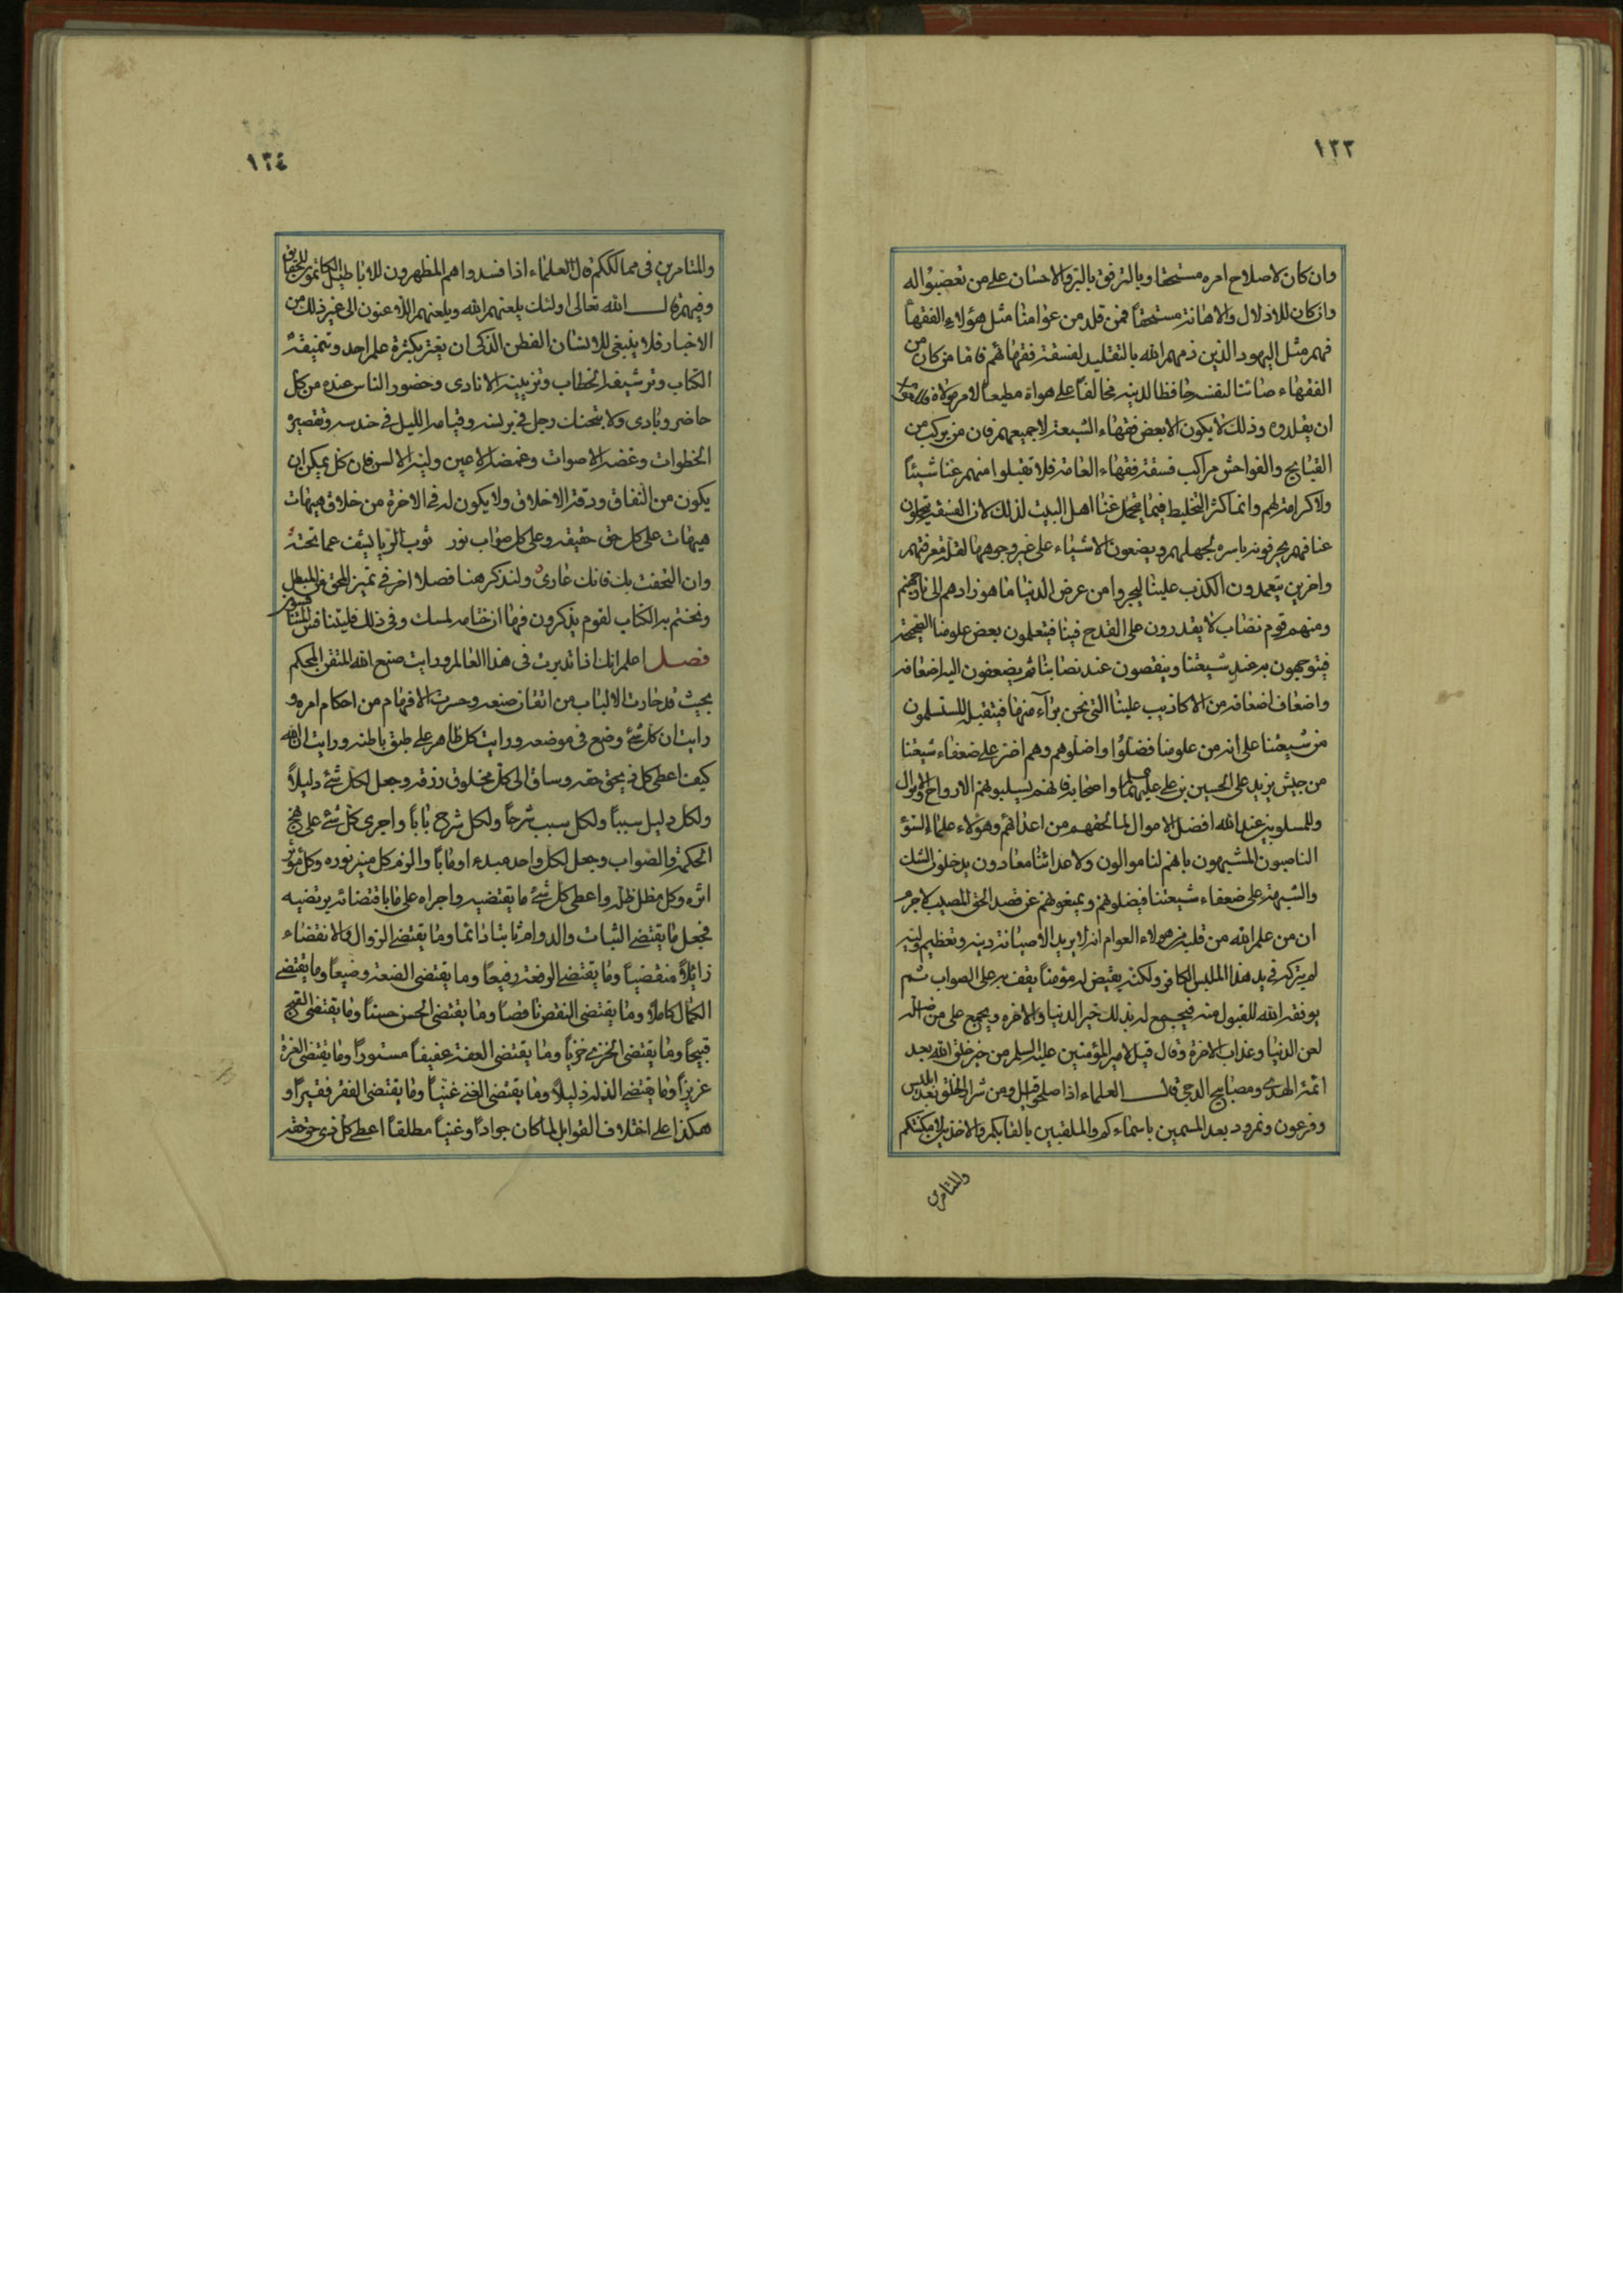 ١٢٣
وان كان لاصلاح امره مستحقا وبالترفق بالبر والاحسان على من تعصبوا له
وان كان للاذلال والاهانة مستحقاً فمن قلد من عوامنا مثل هؤلاء الفقهاء
فهم مثل اليهود الذين ذمهم الله بالتقليد لفسقة فقهائهم فاما من كان من
الفقهاء صائنا لنفسه حافظا لدينه مخالفاً على هواه مطيعاً لامر مولاه فللعوام
ان يقلدوه وذلك لا يكون الا بعض فقهاء الشيعة لا جميعهم فان من يركب من
القبايح والفواحش مراكب فسقة فقهاء العامة فلا تقبلوا منهم عنا شيئاً
ولا كرامة لهم وانما كثر التخليط فيما يتحمل عنا اهل البيت لذلك لان الفسقة يتحملون
عنا فهم يحرفونه باسره لجهلهم ويضعون الاشياء على غير وجوهها لقلة معرفتهم
واخرين يتعمدون الكذب علينا ليجروا من عرض الدنيا ما هو زادهم الى نار جهنم
ومنهم قوم نصاب لا يقدرون على القدح فينا فيتعلمون بعض علومنا الصحيحة
فيتوجهون به عند شيعتنا وينقصون عند نصابنا ثم يضعفون اليه اضعافه
واضعاف اضعافه من الاكاذيب علينا التي نحن برآء منها فيتقبله المستسلمون
من شيعتنا على انه من علومنا فضلوا واضلوهم وهم اضر على ضعفاء شيعتنا
من جيش يزيد على الحسين بن علي عليهما السلم واصحابه فانهم يسلبونهم الارواح والاموال
وللمسلوبين عند الله افضل الاموال لما لحقهم من اعدائهم وهؤلاء علماء السوء
الناصبون المشبهون بانهم لنا موالون ولاعدائنا معادون يدخلون الشك
والشبهة على ضعفاء شيعتنا فيضلونهم ويمنعونهم عن قصد الحق المصيب لا جرم
ان من علم الله من قلبه من هولاء العوام انه لا يريد الا صيانة دينه وتعظيم وليه
لم يتركه في يد هذا الملبس الكافر ولكنه يقيض له مؤمناً يقف به على الصواب ثم
يوفقه الله للقبول منه فيجمع له بذلك خير الدنيا والاخره ويجمع على من اضله
لعن الدنيا وعذاب الاخرة وقال قيل لامير المؤمنين عليه السلم من خير خلق الله بعد
ائمة الهدى ومصابيح الدجى قال العلماء اذا صلحوا قيل ومن شر الخلق بعد ابليس
وفرعون ونمرود بعد المسمين باسمائكم والملقبين بالقابكم والاخذين لامكنتكم
والمتامرين
١٢٤
والمتامرين في ممالككم قال العلماء اذا فسدوا هم المظهرون للاباطيل الكاتمون للحقايق
وفيهم قال الله تعالى اولئك يلعنهم الله ويلعنهم اللاعنون الى غير ذلك من
الاخبار فلا ينبغي للانسان الفطن الذكي ان يغتر بكثرة علم احد وتنميقه
الكتاب وترشيفه الخطاب وتزيينه الانادى وحضور الناس عنده من كل
حاضر وبادى ولا يتحنك رجل في برنسه وقيامه الليل في حندسه وتقصيره
الخطوات وغضه الاصوات وغمضه الاعين ولينه الالسن فان كل يمكن ان
يكون من النفاق ودقة الاخلاق ولا يكون له في الاخرة من خلاق هيهات
هيهات على كل حق حقيقه وعلى كل صواب نور ثوب الريا يشف عما تحته
وان التحفت به فانك عارى ولنذكر هنا فصلا اخر في تميز المحق من المبطل
ونختم به الكتاب لقوم يذكرون فيها ان ختامه لمسك وفي ذلك فليتنافس المتنافسون
فصل اعلم انك اذا تدبرت في هذا العالم ورايت صنع الله المتقن المحكم
بحيث قد حارت الالباب من اتقان صنعه وحسرت الافهام من احكام امره و
رايت ان كل شئ وضع في موضعه ورايت كل ظاهر على طبق باطنه ورايت ان الله
كيف اعطى كل ذي حق حقه وساق الى كل مخلوق رزقه وجعل لكل شئ دليلاً
ولكل دليل سبباً ولكل سبب شرحاً ولكل شرح باباً واجرى كل شئ على نهج
الحكمة والصواب وجعل لكل واحد مبدء اوماباً والزم كل منير نوره وكل مؤثر
اثره وكل مظل ظله واعطى كل شئ ما يقتضيه واجراه على ما باقتضائه يرتضيه
فجعل ما يقتضى الثبات والدوام ثابتا دائما وما يقتضى الزوال والانقضاء
زايلاً منقضياً وما يقتضى الرفعة رفيعاً وما يقتضى الضعة وضيعاً وما يقتضى
الكمال كاملاً وما يقتضى النقص ناقصاً وما يقتضى الحسن حسناً وما يقتضى القبح
قبيحاً وما يقتضى الخزي خزياً وما يقتضى العفة عفيفاً مستوراً وما يقتضى العزة
عزيزاً وما يقتضى الذلة ذليلاً وما يقتضى الغنى غنياً وما يقتضى الفقر فقيراً و
هكذا على اختلاف القوابل لما كان جواداً وغنياً مطلقاً اعطى كل ذى حق حقه